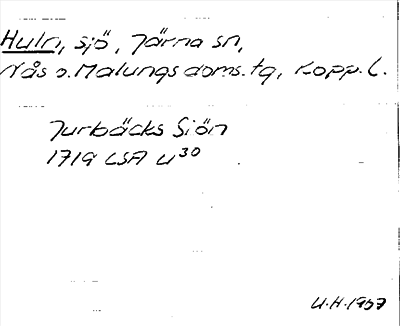 Huln, sjö, Järna sn,
Nås o. Malungs doms. tg, Kopp. l.
Jurbäcks Siön
1719 LSA U30
U.H. 1957